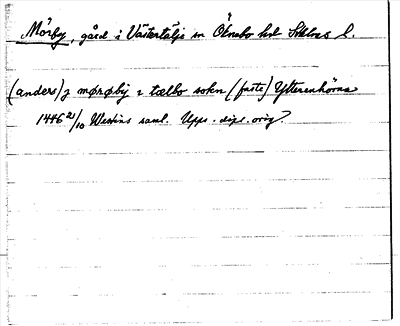 Mörby, gård i Västertälje sn Öknebo hd Sthlms l.
(anders) j mørøby i tælbo sokn (faste) Ytterenhörna
1446 21/10 Westins saml. Upps. dipl. orig.